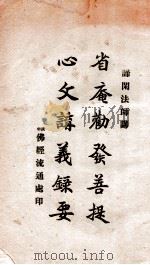 諦閑法師講
省庵勸發菩提
心文講義錄要
佛經流通處印
mtoou.info